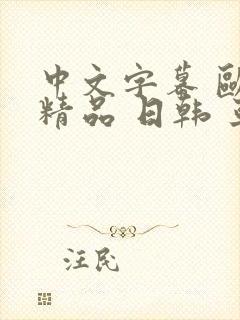 中文字幕 歐
精品 日韩
汪民